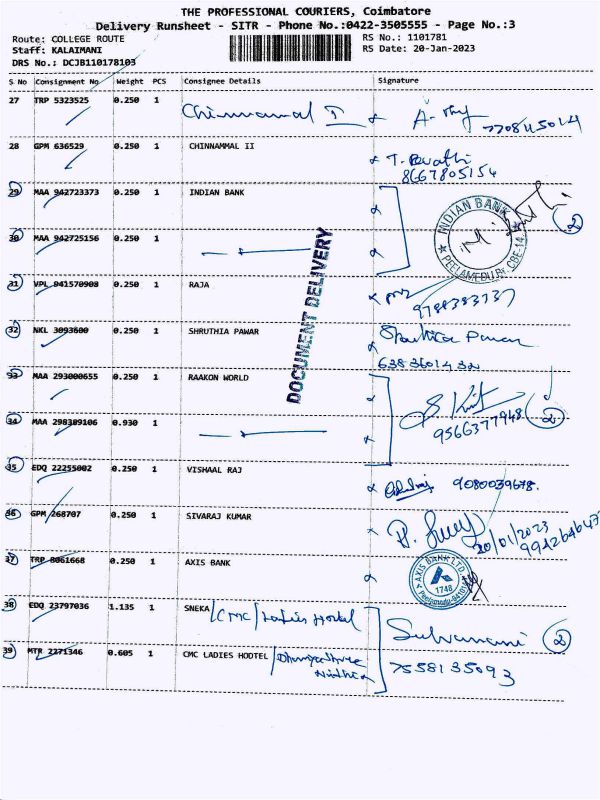 THE PROFESSIONAL COURIERS, Coimbatore
Delivery Runsheet - SITR - Phone No.:0422-3505555 - Page No.:3
Route: COLLEGE ROUTE
RS No.: 1101781
Staff: KALAIMANI
RS Date: 20-Jan-2023
DRS No.: DCJB110178103
S No Consignment No Weight PCS Consignee Details Signature
27 TRP 5323525 0.250 1 Chinnamal I 7708115014
28 GPM 636529 0.250 1 CHINNAMMAL II T. Revathi
8667805154
29 MAA 942723373 0.250 1 INDIAN BANK
INDIAN BANK
PEELAMEDU Br. CBE-14
2
30 MAA 942725156 0.250 1
DOCUMENT DELIVERY
31 VPL 941570908 0.250 1 RAJA
9788383737
32 NKL 3093600 0.250 1 SHRUTHIA PAWAR Shruthia Pawar
6383601432
33 MAA 293000655 0.250 1 RAAKON WORLD
9566377948 2
34 MAA 298389106 0.930 1
35 EDQ 22255002 0.250 1 VISHAAL RAJ 9080039678.
36 GPM 268707 0.250 1 SIVARAJ KUMAR
20/01/2023
37 TRP 8061668 0.250 1 AXIS BANK
AXIS BANK LTD
1748
38 EDQ 23797036 1.135 1 SNEKA /CMC/Ladies Hostel
Selvamani 2
39 MTR 2271346 0.605 1 CMC LADIES HODTEL
7558135093